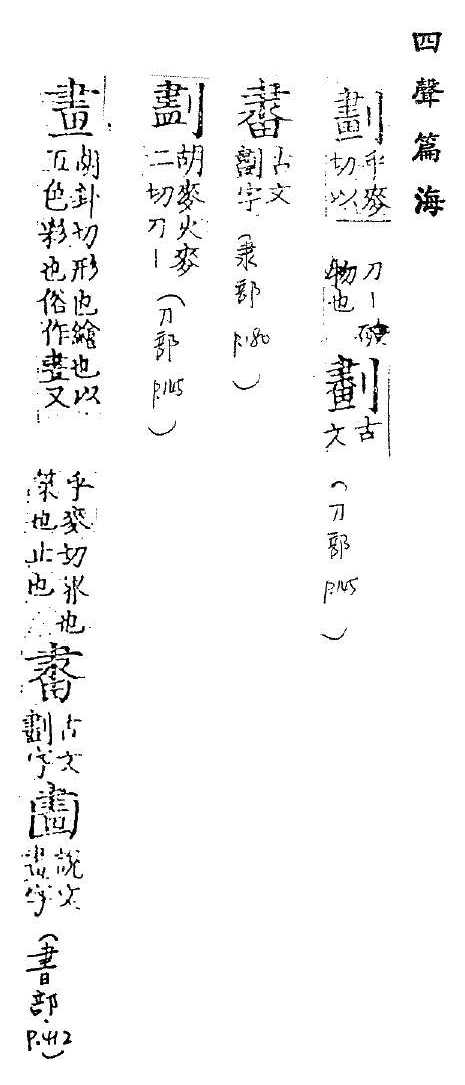 四聲篇海
劃乎麥切以刀丨破物也劃古文(刀部P.145)
古文劃字(隶部P.180)
胡麥火麥二切刀丨(刀部P.145)
畫胡卦切形也繪也以五色彩也俗作畫又
乎麥切也策也止也古文劃字說文畫字(書部.P.412)